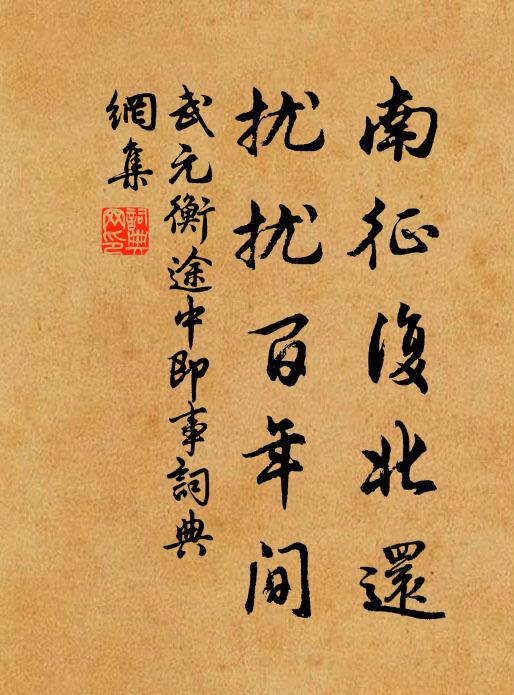 南征復北還
扰扰百年间
武元衡途中即事詞典
網集
詞典
网印